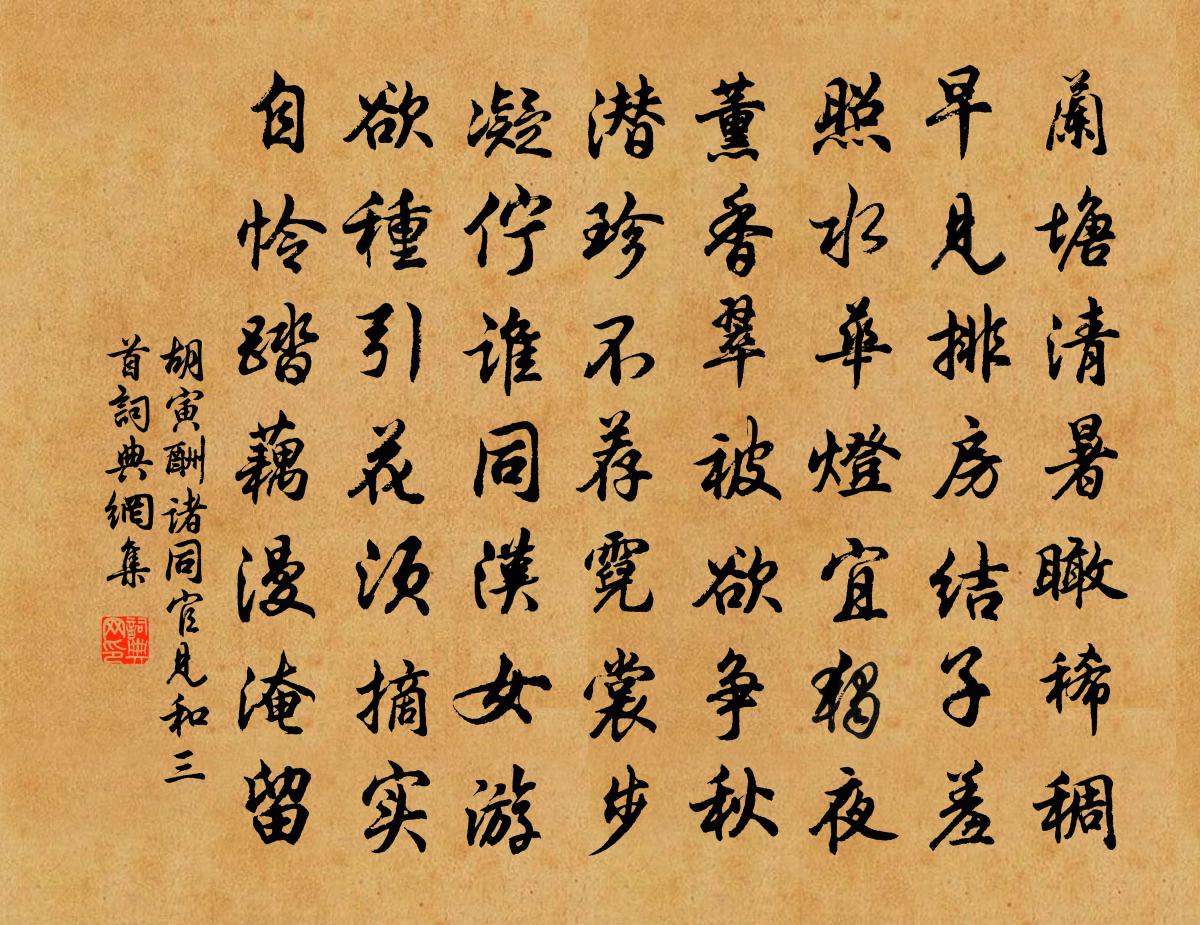 蘭塘清暑瞰稀稠
早見排房结子羞
照水華燈宜獨夜
薰香翠被欲争秋
潜珍不荐霓裳步
凝佇谁同漢女游
欲種引花须摘实
自怜踏藕漫淹留
胡寅酬诸同官見和三
首詞典網集
詞典网印